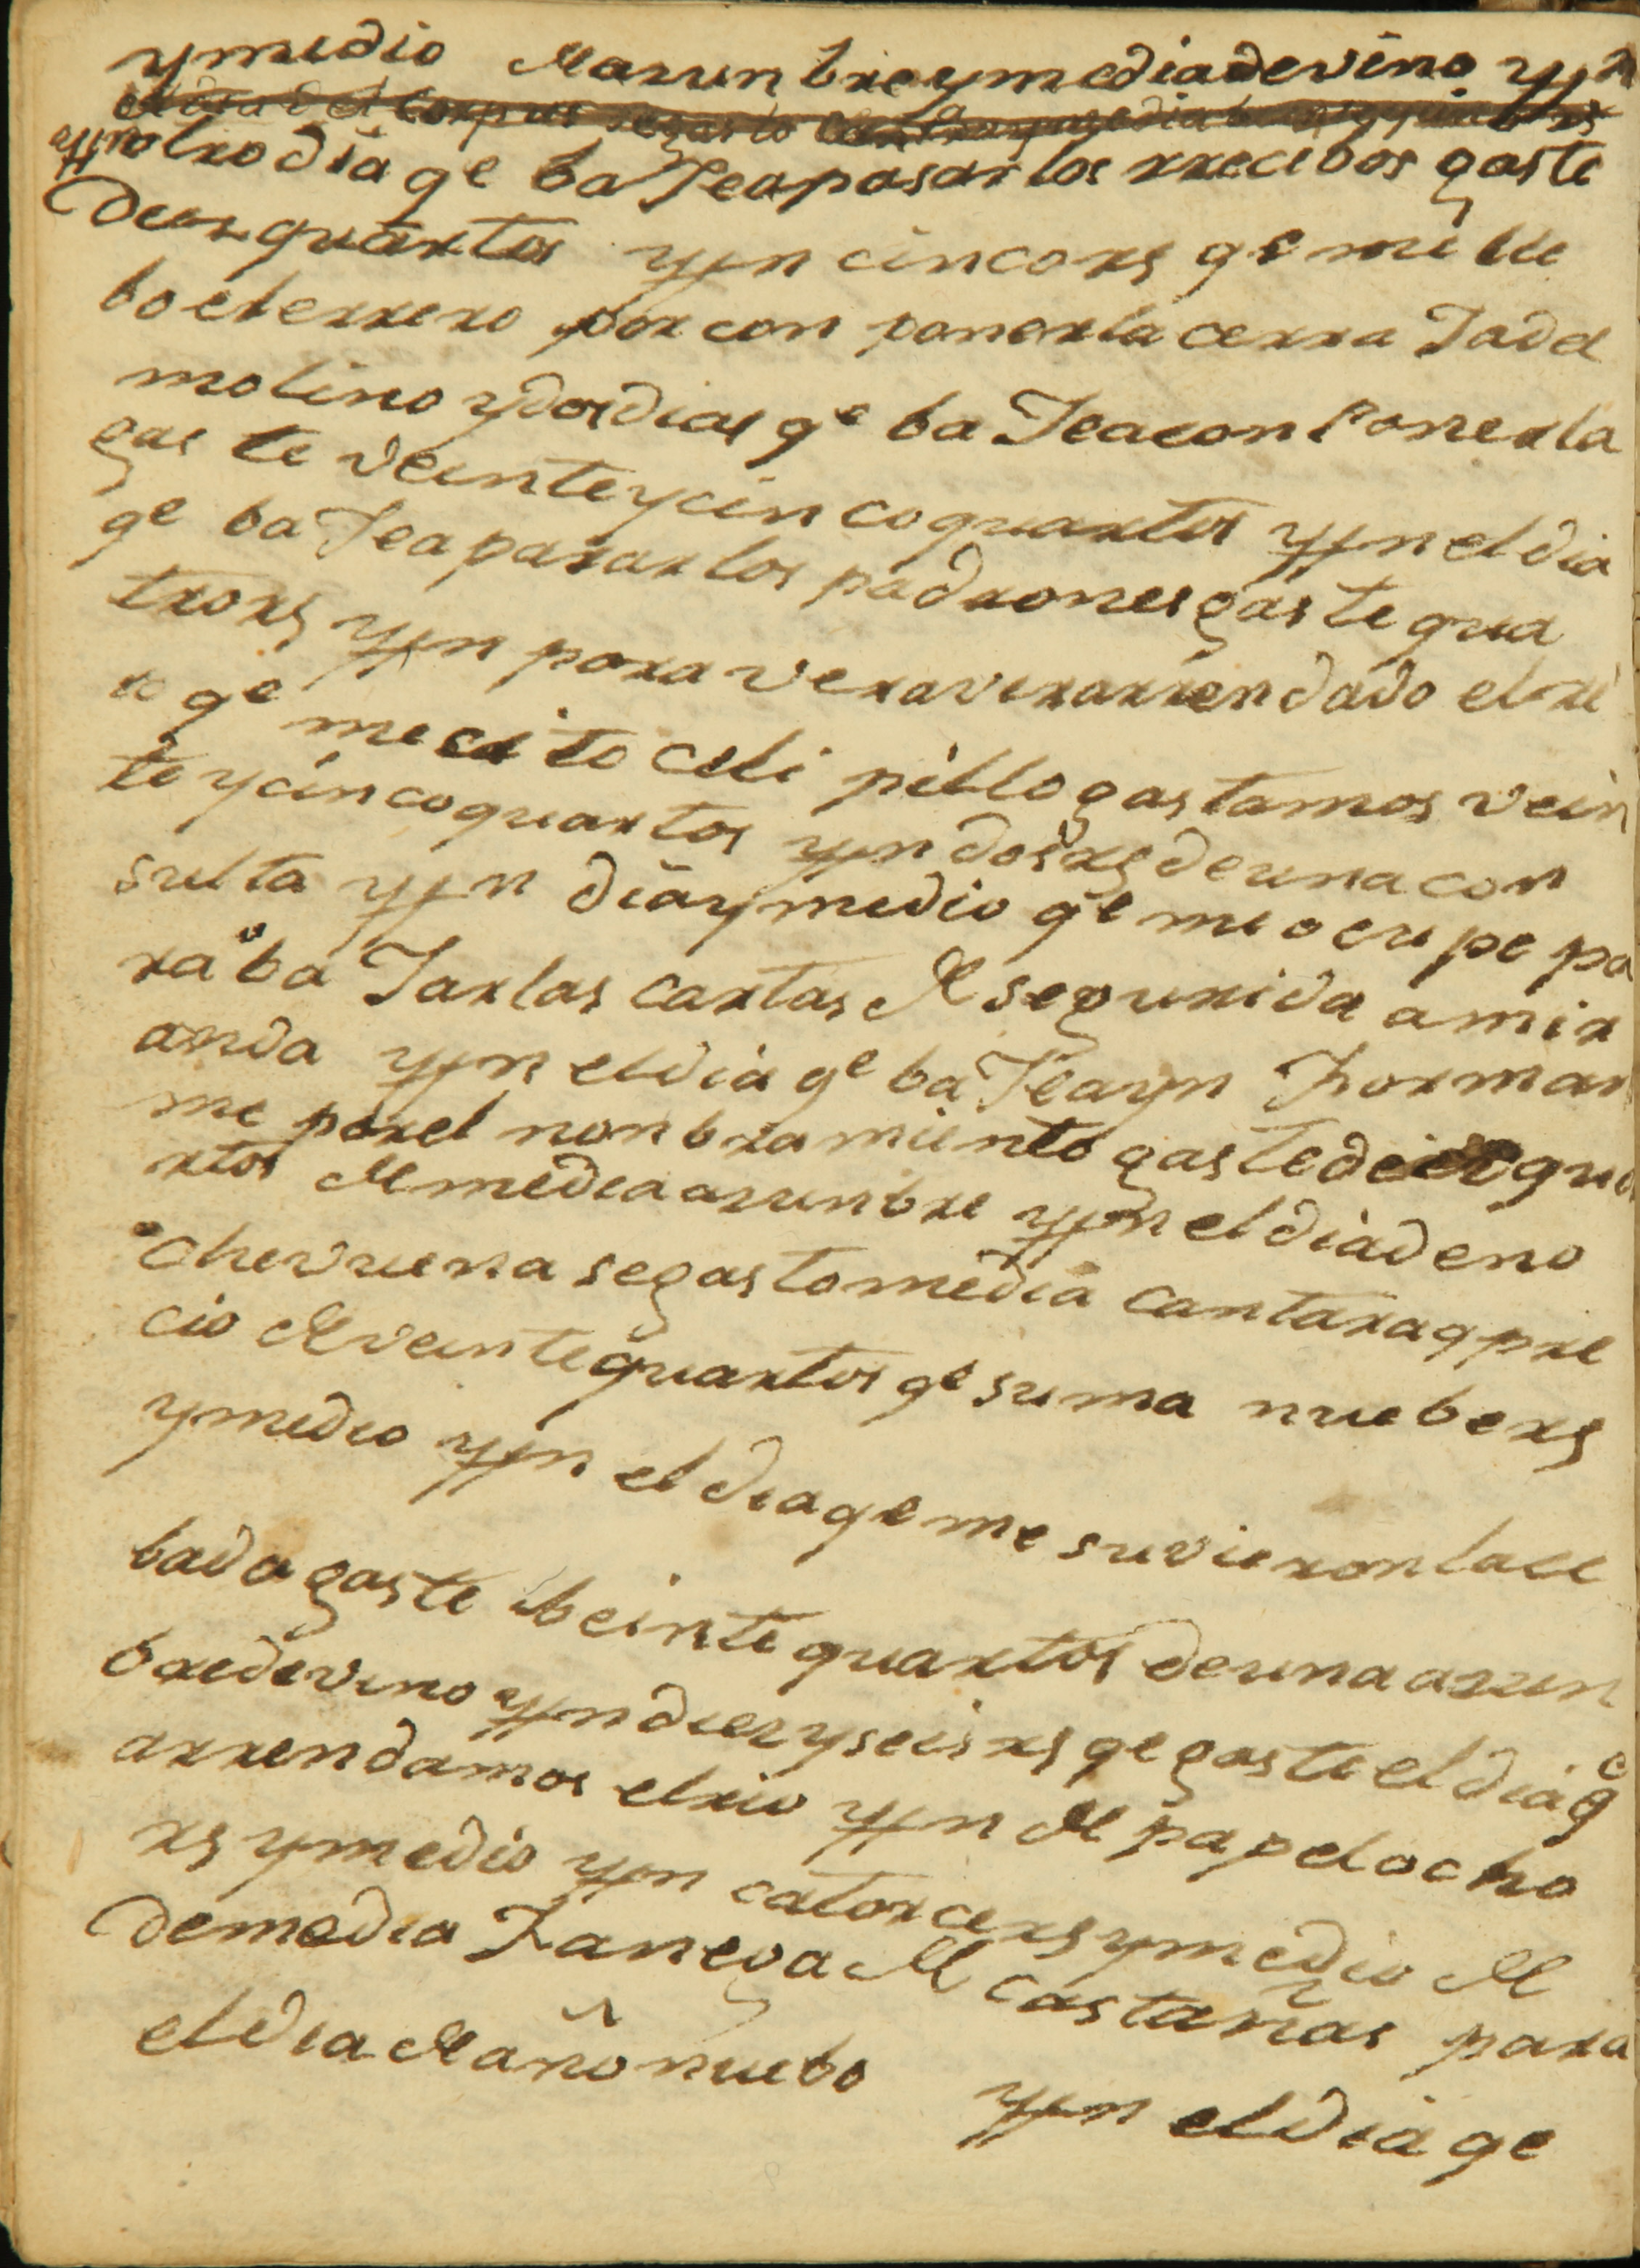 y medio de arunbre y media de vino ytn
el dia del Corpus se gasto
otro dia qe bagea pasar los rrecibos gaste
diez quartos ytn cinco rs qe me lle
bo el errero por conponer la cerraja del
molino y dos dias qe bage a conPonerla
gaste veinte y cinco quartos ytn el dia
qe bage a pasar los padrones gaste qua
tro rs ytn por aver aver arrendado el ri
o qe me cito Celipillo gastamos vein
te y cinco quartos ytn dos rs de una con
sulta ytn dia y medio qe me ocupe pa
ra bajar las cartas de segurida a mir
anda ytn el dia qe bage a ynformar
me por el nonbramiento gaste diez qua
rtos de media arunbre ytn el dia de no
chevuena se gasto media cantara a pre
cio de veinte quartos qe suma nuebe rs
y medio ytn el dia qe me suvieron la ce
bada gaste beinte quartos de una arun
bre de vino ytn diez y seis rs qe gaste el dia qe
arrendamos el rio ytn de papel ocho
rs y medio ytn catorce rs y medio de
de media Fanega de castañas para
el dia de año nuebo ytn el dia qe